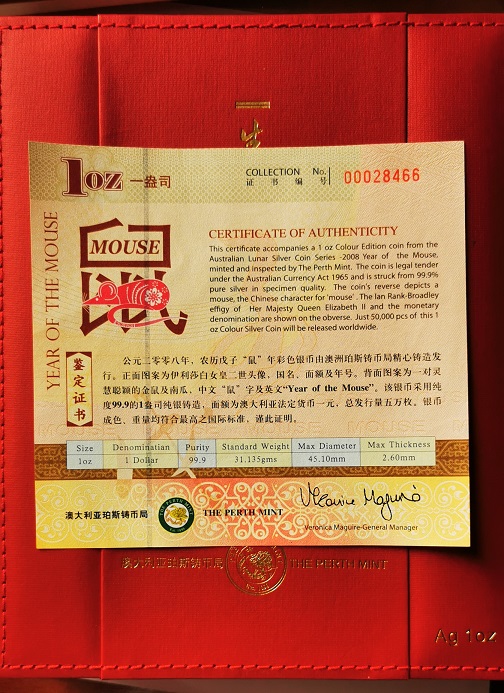 1oz 一盎司
COLLECTION No.
证书编号
00028466
YEAR OF THE MOUSE
MOUSE
鼠
CERTIFICATE OF AUTHENTICITY
This certificate accompanies a 1 oz Colour Edition coin from the
Australian Lunar Silver Coin Series -2008 Year of the Mouse,
minted and inspected by The Perth Mint. The coin is legal tender
under the Australian Currency Act 1965 and is struck from 99.9%
pure silver in specimen quality. The coin's reverse depicts a
mouse, the Chinese character for 'mouse'. The Ian Rank-Broadley
effigy of Her Majesty Queen Elizabeth II and the monetary
denomination are shown on the obverse. Just 50,000 pcs of this 1
oz Colour Silver Coin will be released worldwide.
鉴定证书
公元二零零八年，农历戊子“鼠”年彩色银币由澳洲珀斯铸币局精心铸造发
行。正面图案为伊利莎白女皇二世头像，国名，面额及年号。背面图案为一对灵
慧聪颖的金鼠及南瓜，中文“鼠”字及英文“Year of the Mouse”。该银币采用纯
度99.9的1盎司纯银铸造，面额为澳大利亚法定货币一元，总发行量五万枚。银币
成色、重量均符合最高之国际标准，谨此证明。
Size Denomination Purity Standard Weight Max Diameter Max Thickness
1oz 1 Dollar 99.9 31.135gms 45.10mm 2.60mm
澳大利亚珀斯铸币局
THE PERTH MINT
Veronica Maguire-General Manager
澳大利亚珀斯铸币局
THE PERTH MINT
Ag 1oz